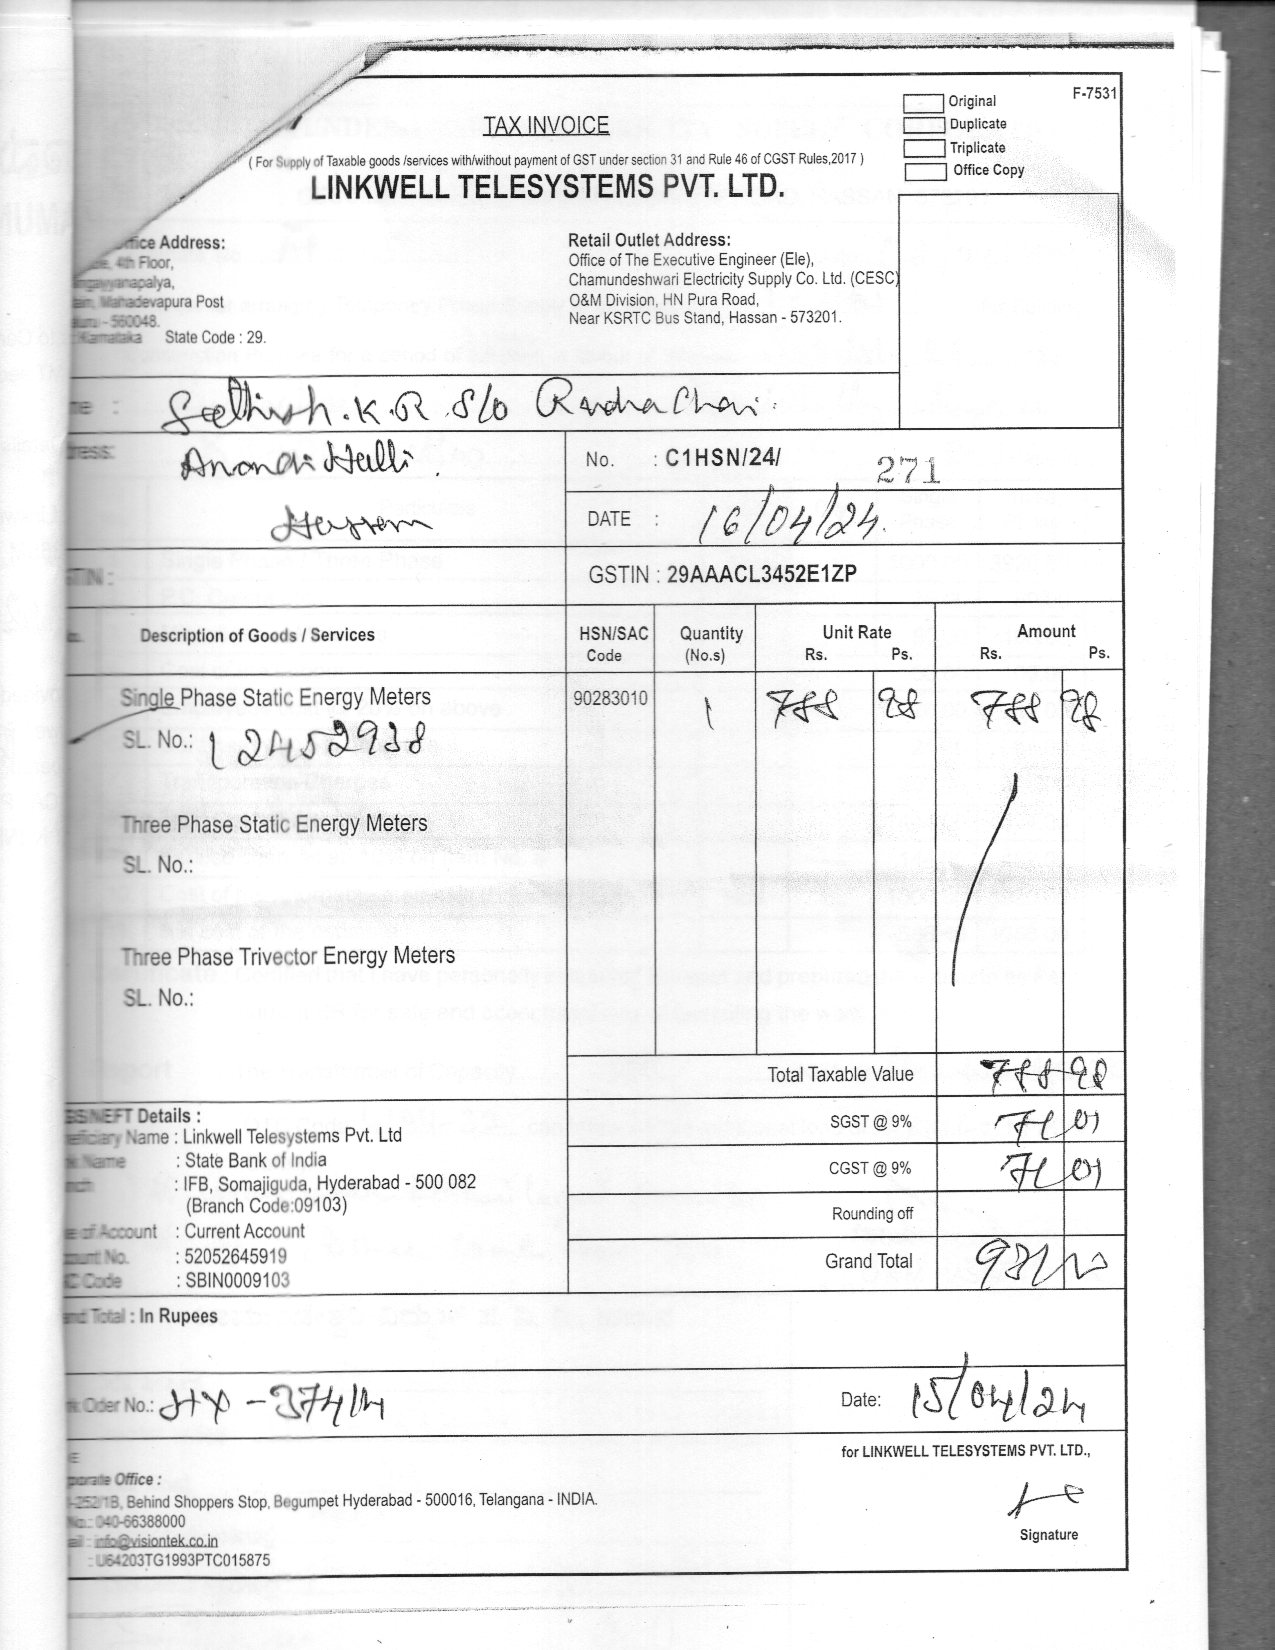 F-7531
Original
Duplicate
Triplicate
Office Copy
TAX INVOICE
( For Supply of Taxable goods /services with/without payment of GST under section 31 and Rule 46 of CGST Rules,2017 )
LINKWELL TELESYSTEMS PVT. LTD.
Address:
4th Floor,
Mahadevapura Post
- 560048.
Karnataka State Code : 29.
Retail Outlet Address:
Office of The Executive Engineer (Ele),
Chamundeshwari Electricity Supply Co. Ltd. (CESC)
O&M Division, HN Pura Road,
Near KSRTC Bus Stand, Hassan - 573201.
K.R S/o
No. : C1HSN/24/ 271
DATE : 16/04/24.
GSTIN : 29AAACL3452E1ZP
Description of Goods / Services HSN/SAC Code Quantity (No.s) Unit Rate Rs. Ps. Amount Rs. Ps.
Single Phase Static Energy Meters 90283010 1 788 98 788 98
SL. No.: 12452938
Three Phase Static Energy Meters
SL. No.:
Three Phase Trivector Energy Meters
SL. No.:
Total Taxable Value 788 98
SGST @ 9% 71 01
CGST @ 9% 71 01
Rounding off
Grand Total 931
NEFT Details :
Name : Linkwell Telesystems Pvt. Ltd
Name : State Bank of India
: IFB, Somajiguda, Hyderabad - 500 082
(Branch Code:09103)
of Account : Current Account
No. : 52052645919
Code : SBIN0009103
Total : In Rupees
Oder No.:
Date: 15/04/24
for LINKWELL TELESYSTEMS PVT. LTD.,
Signature
Office :
Behind Shoppers Stop, Begumpet Hyderabad - 500016, Telangana - INDIA.
040-66388000
info@visiontek.co.in
: U64203TG1993PTC015875